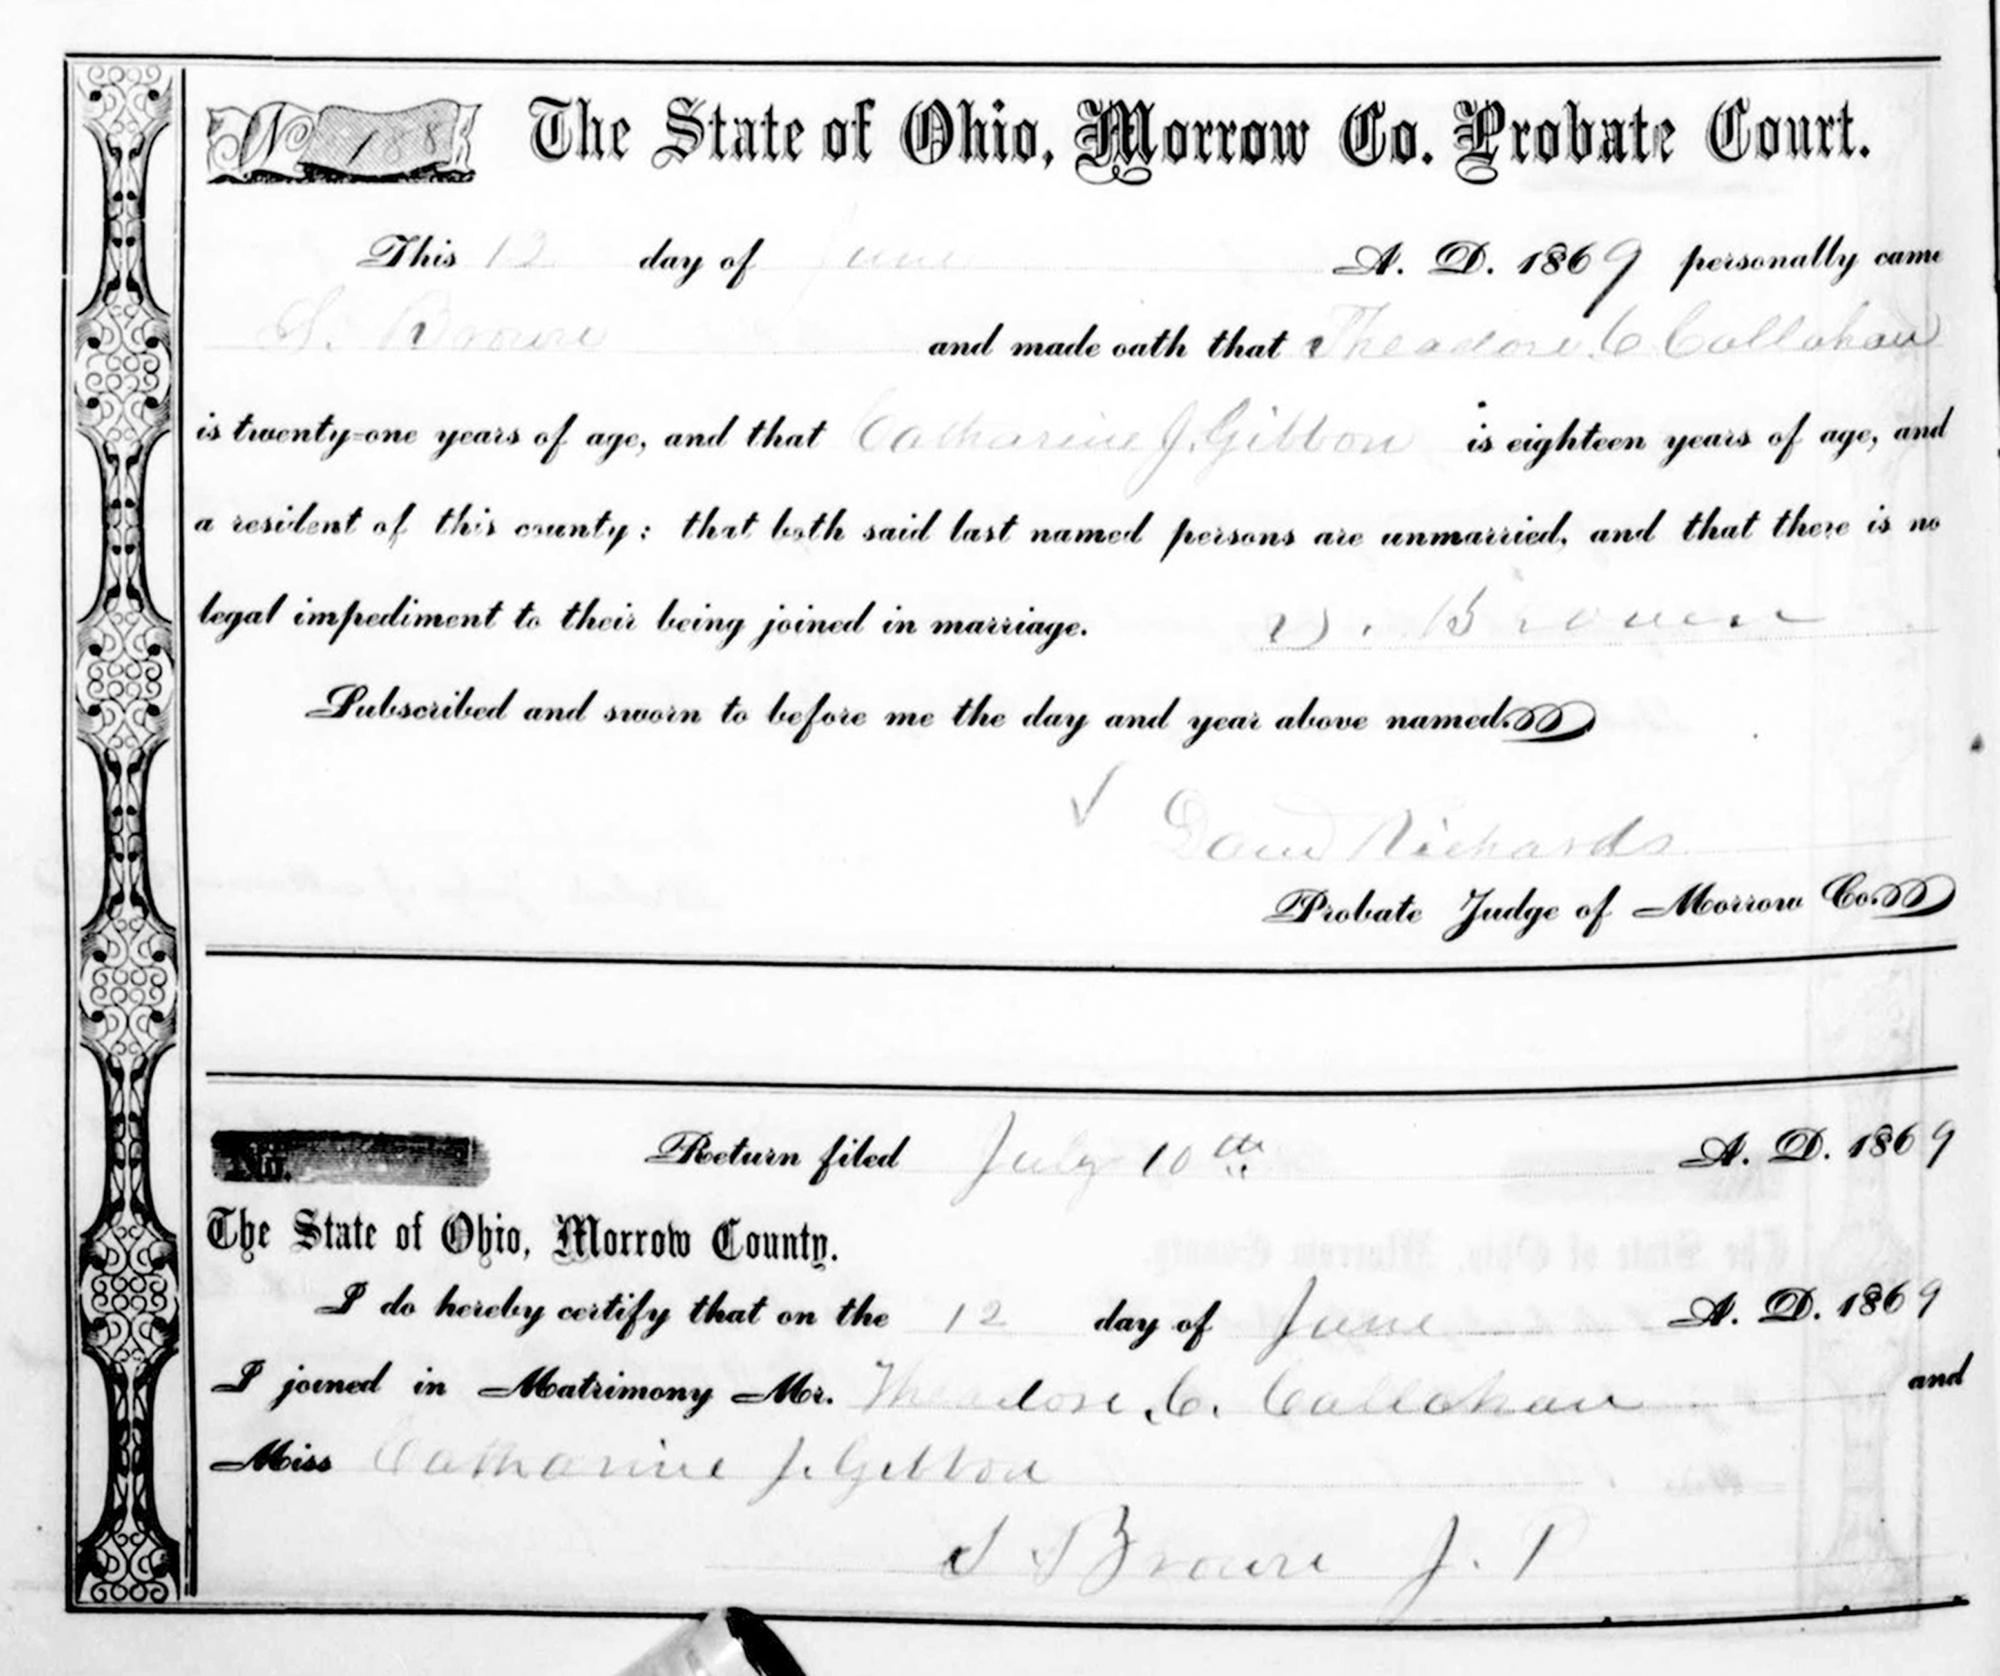 No 188
The State of Ohio, Morrow Co. Probate Court.
This 12 day of June A. D. 1869 personally came
S. Brown and made oath that Theodore C Callahan
is twenty-one years of age, and that Catharine J. Gibbon is eighteen years of age, and
a resident of this county: that both said last named persons are unmarried, and that there is no
legal impediment to their being joined in marriage. S. Brown
Subscribed and sworn to before me the day and year above named.
David Richards
Probate Judge of Morrow Co.
No. Return filed July 10th A. D. 1869
The State of Ohio, Morrow County.
I do hereby certify that on the 12 day of June A. D. 1869
I joined in Matrimony Mr. Theodore C. Callahan and
Miss Catharine J. Gibbon
S Brown J. P